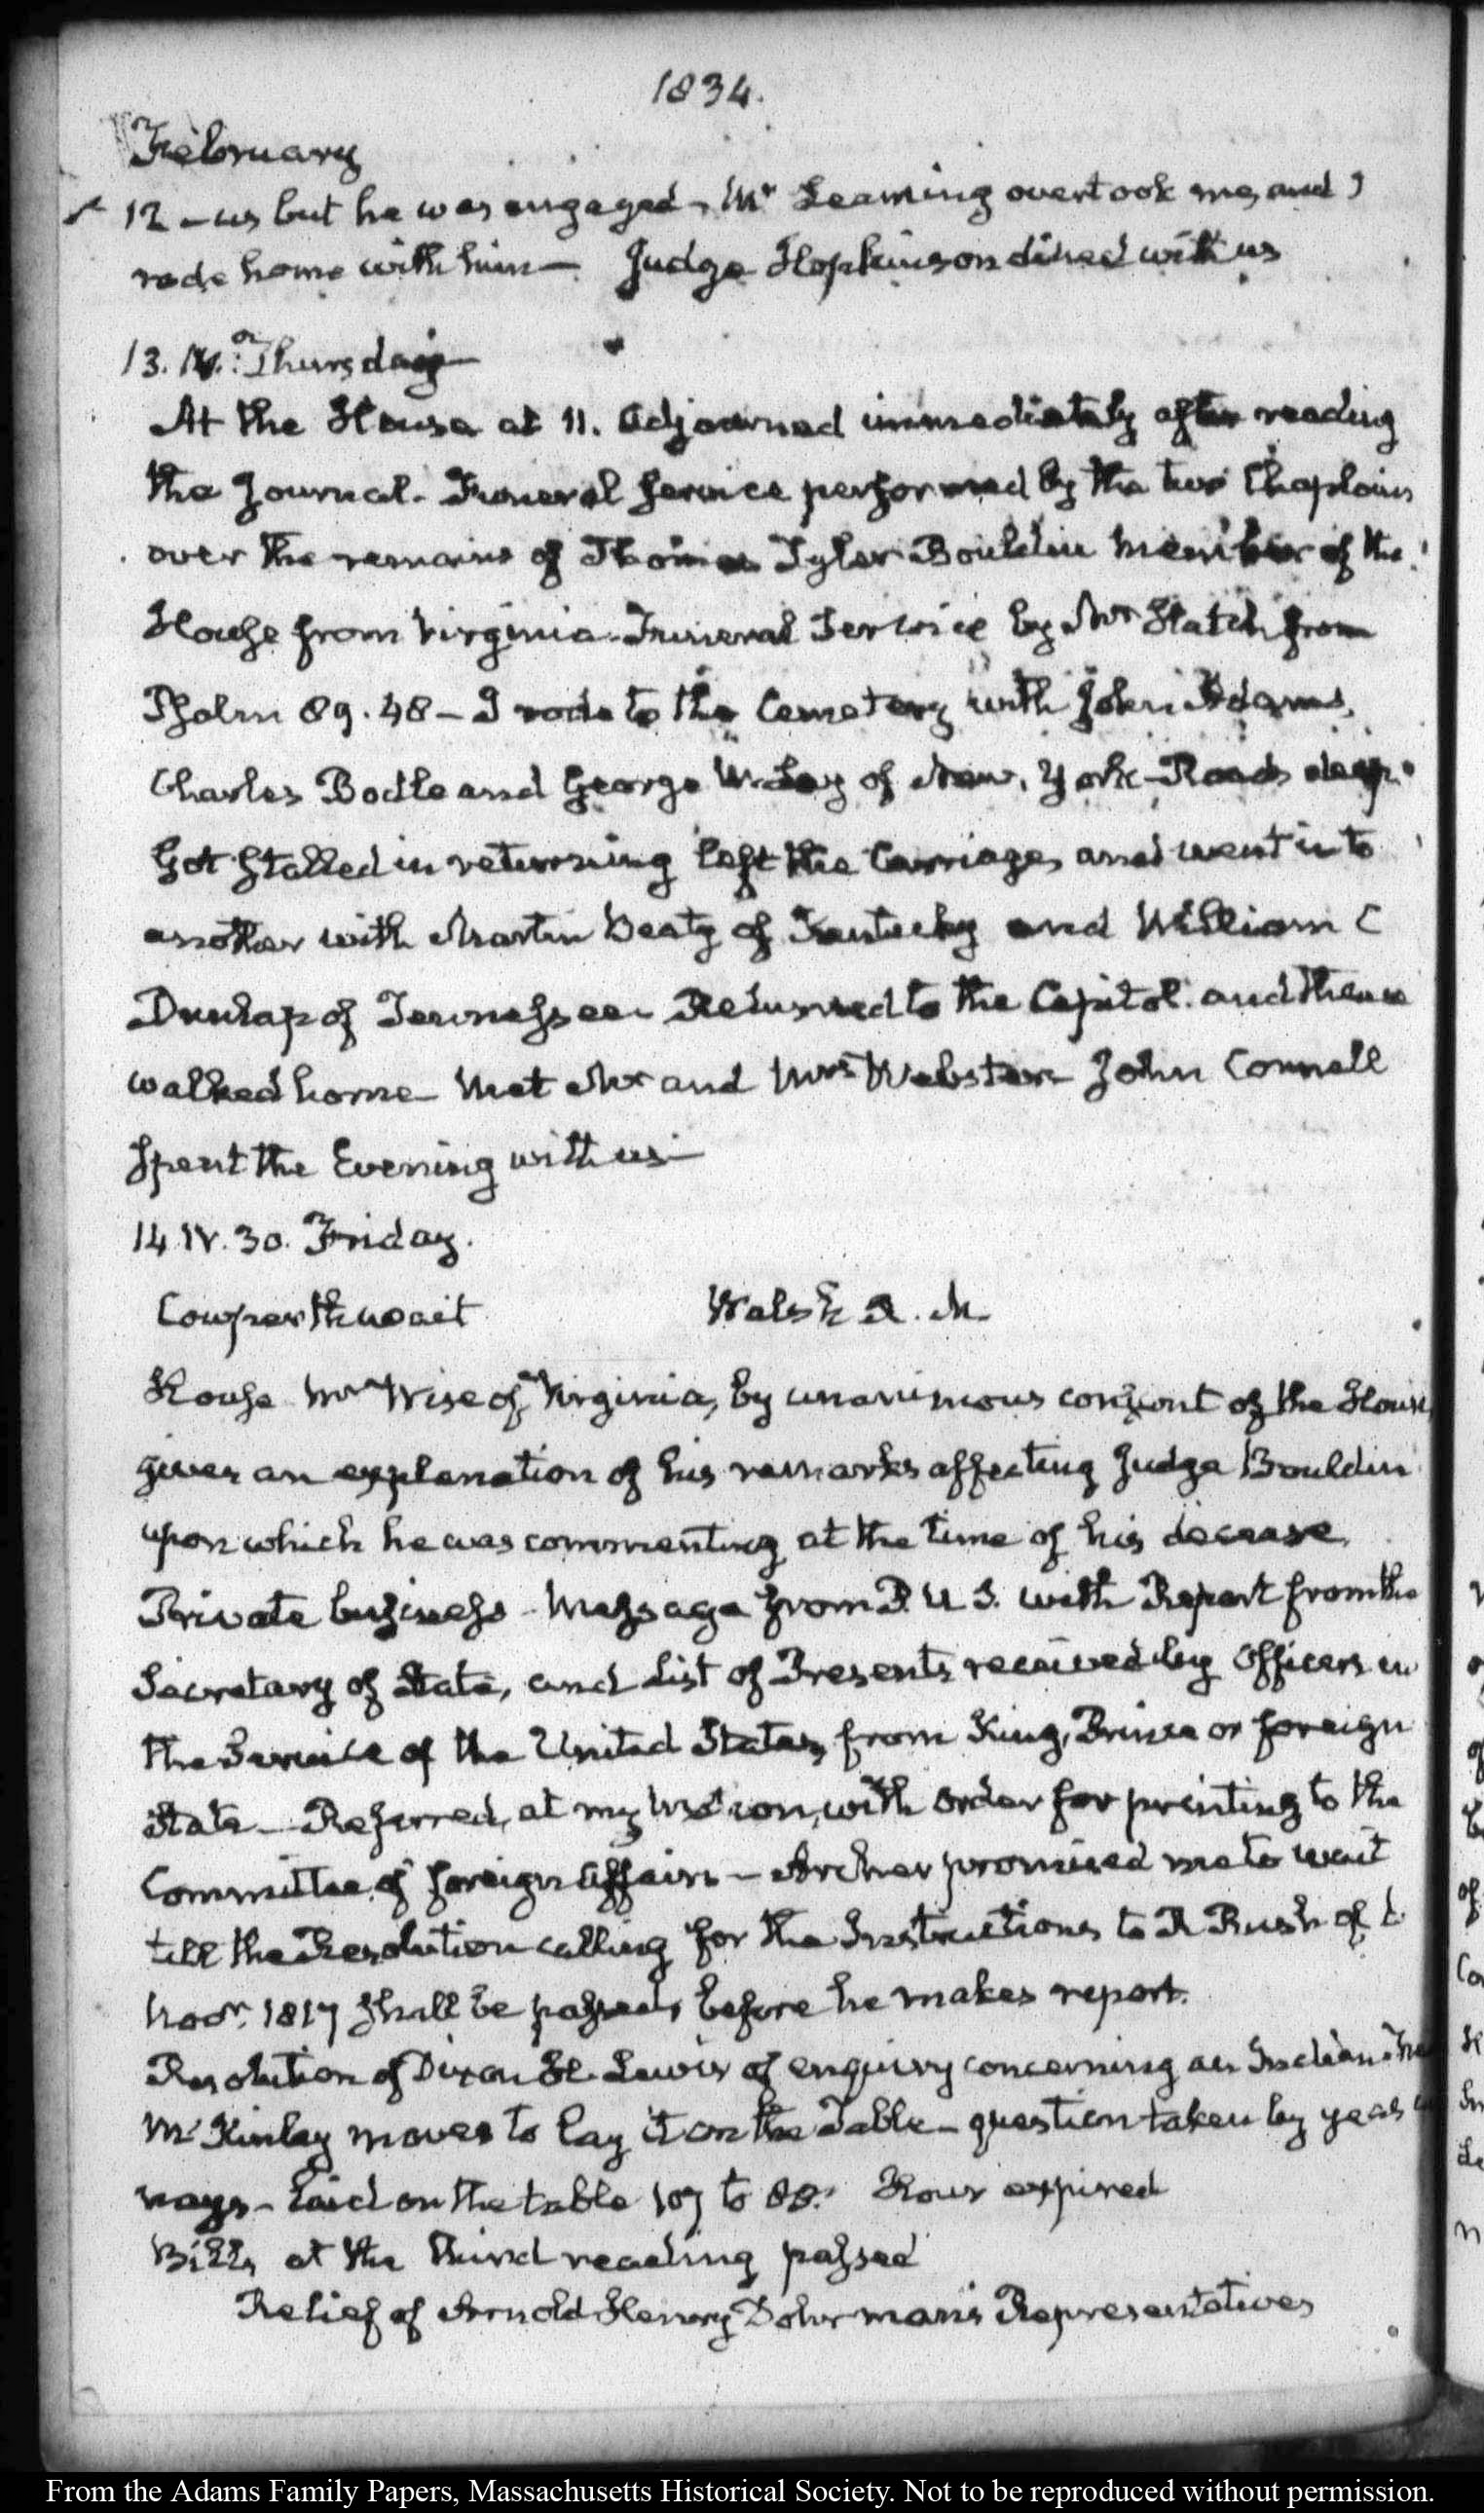 1834.
February
12 – us but he was engaged – Mr Leaming overtook me, and I
rode home with him – Judge Hopkinson dined with us
13. IV. Thursday
At the House at 11. Adjourned immediately after reading
the Journal. Funeral service performed by the two Chaplains
over the remains of Thomas Tyler Bouldin member of the
House from Virginia. Funeral Service by Mr Hatch from
Psalm 89. 48 – I rode to the Cemetery with John Adams,
Charles Bodle and George W. Lay of New York – Roads deep.
Got stalled in returning left the Carriage, and went into
another with Martin Beaty of Kentucky and William C
Dunlap of Tennessee. Returned to the Capitol. and thence
walked home – Met Mr and Mrs Webster – John Connell
spent the Evening with us –
14. IV. 30. Friday.
Cowperthwait Walsh R. M.
House Mr Wise of Virginia, by unanimous consent of the House,
gives an explanation of his remarks affecting Judge Bouldin
upon which he was commenting at the time of his decease.
Private business – Message from P. U. S. with Report from the
Secretary of State, and List of Presents received by Officers in
the Service of the United States, from King, Prince or foreign
State – Referred, at my motion, with order for printing to the
Committee of foreign Affairs – Archer promised me to wait
till the Resolution calling for the Instructions to R Rush of 6
Novr. 1817 shall be passed, before he makes report.
Resolution of Dixon H. Lewis of enquiry concerning an Indian
McKinley moves to lay it on the Table – question taken by yeas
nays – Laid on the table 107 to 88. Hour expired
Bills at the third reading passed
Relief of Arnold Henry Dohrman's Representatives
From the Adams Family Papers, Massachusetts Historical Society. Not to be reproduced without permission.